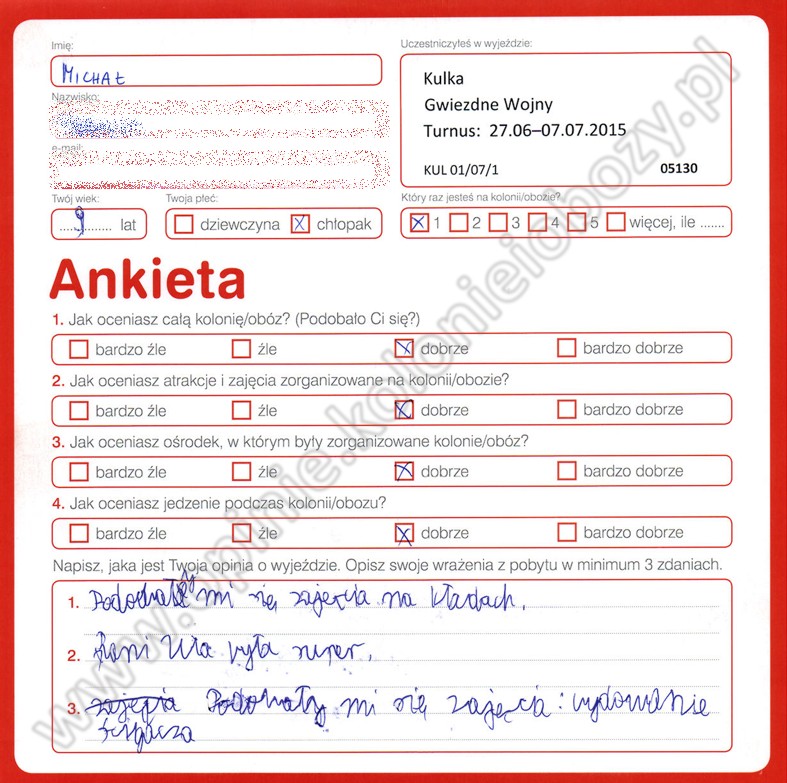 Imię:
MICHAŁ
Nazwisko:
e-mail:
Twój wiek:
9 lat
Twoja płeć:
dziewczyna
X chłopak
Uczestniczyłeś w wyjeździe:
Kulka
Gwiezdne Wojny
Turnus: 27.06–07.07.2015
KUL 01/07/1 05130
Który raz jesteś na kolonii/obozie?
X 1 2 3 4 5 więcej, ile .......
Ankieta
1. Jak oceniasz całą kolonię/obóz? (Podobało Ci się?)
bardzo źle źle X dobrze bardzo dobrze
2. Jak oceniasz atrakcje i zajęcia zorganizowane na kolonii/obozie?
bardzo źle źle X dobrze bardzo dobrze
3. Jak oceniasz ośrodek, w którym były zorganizowane kolonie/obóz?
bardzo źle źle X dobrze bardzo dobrze
4. Jak oceniasz jedzenie podczas kolonii/obozu?
bardzo źle źle X dobrze bardzo dobrze
Napisz, jaka jest Twoja opinia o wyjeździe. Opisz swoje wrażenia z pobytu w minimum 3 zdaniach.
1. Podobały mi się zajęcia na kładach.
2. Pani Ula była super.
3. zajęcia Podobały mi się zajęcia:
www.opinie.kolonieiobozy.pl